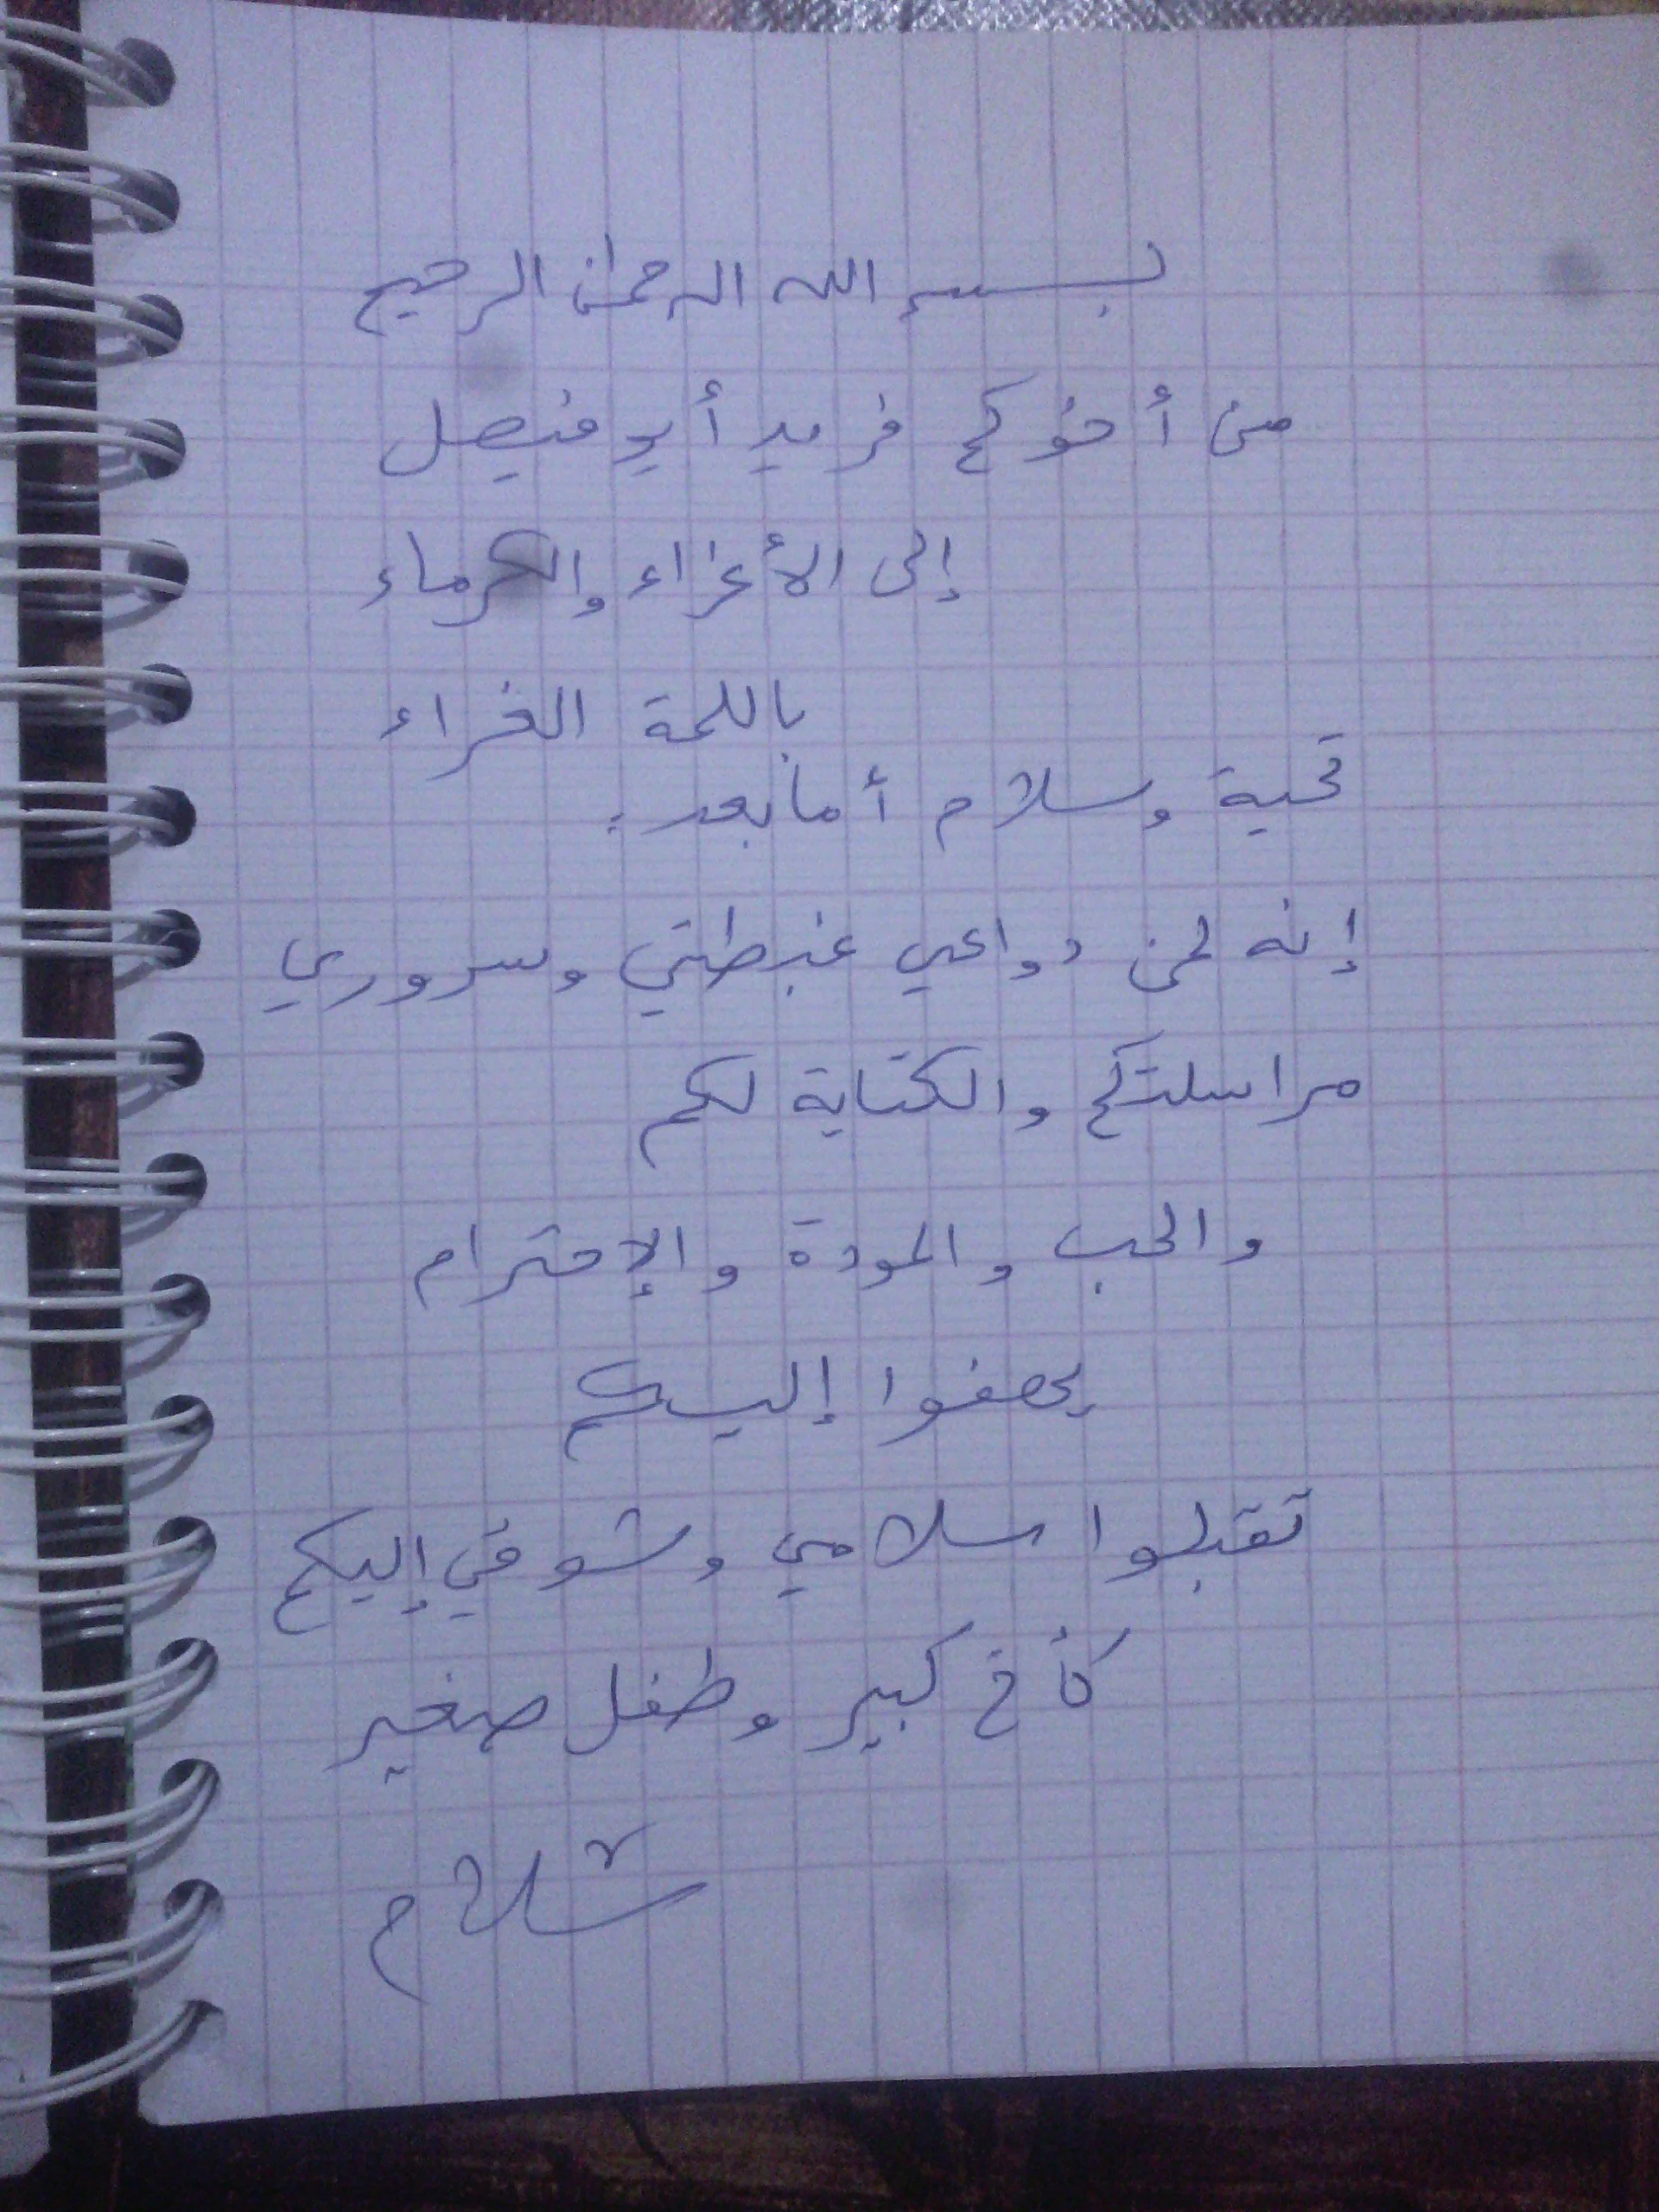 بسم الله الرحمان الرحيم
من أخوكم فريد أبو فيصل
إلى الأعزاء والكرماء
باللمة الغراء
تحية وسلام أما بعد:
إنه لمن دواعي غبطتي وسروري
مراسلتكم والكتابة لكم
والحب والمودة والإحترام
يحفوا إليكم
تقبلوا سلامي وشوقي إليكم
كأخ كبير وطفل صغير
سلام